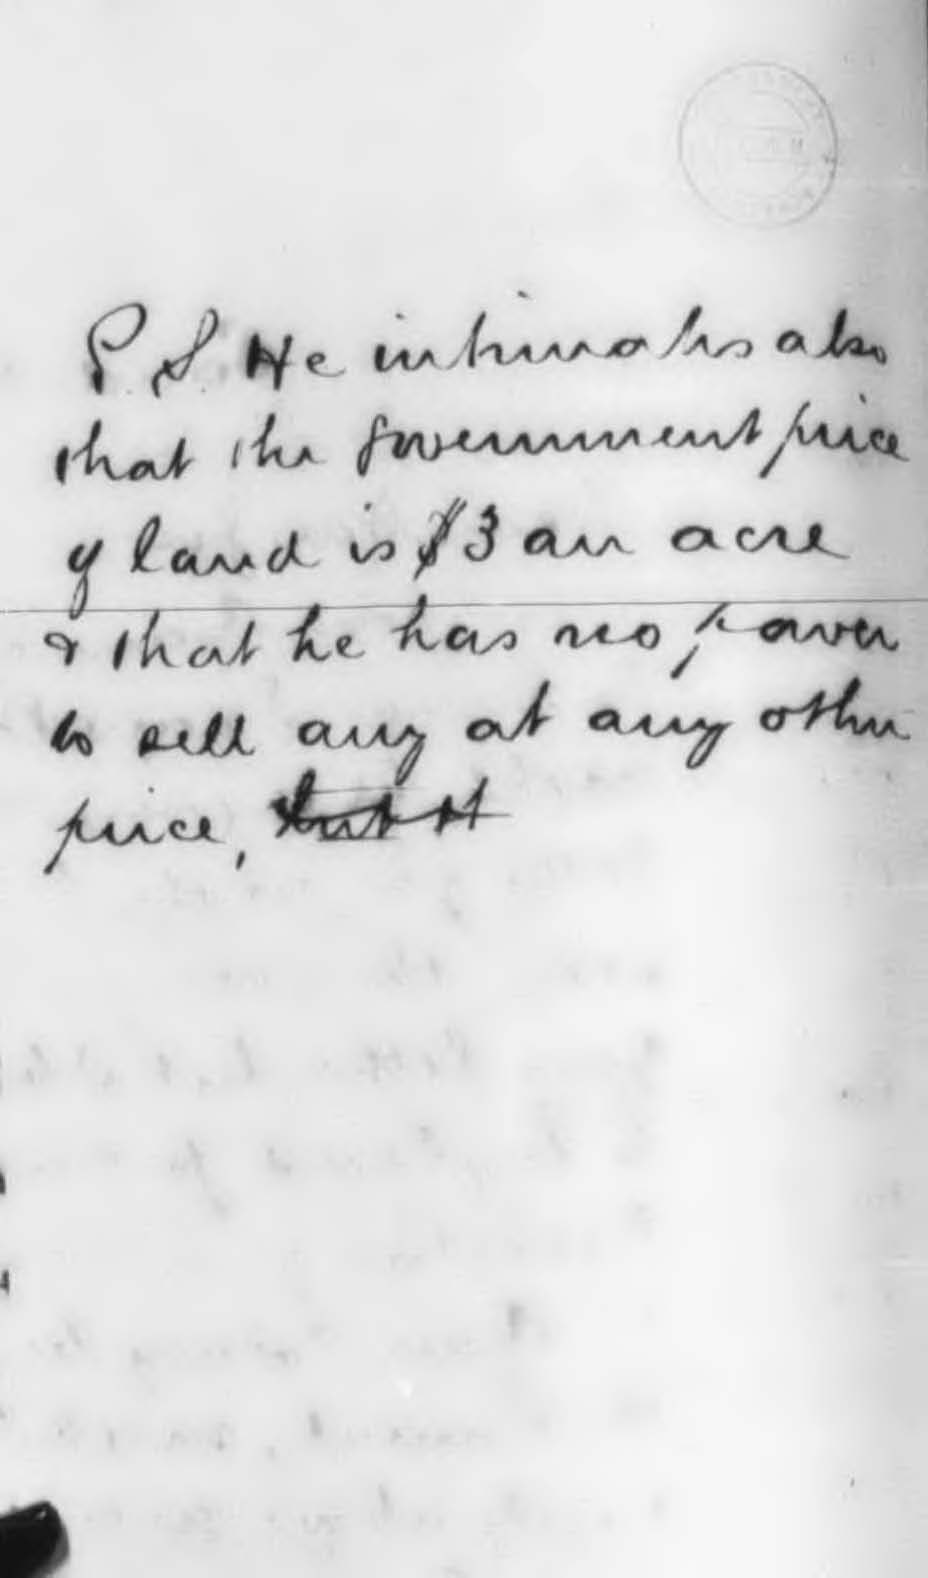 P.S. He intimates also
that the government price
of land is $3 an acre
& that he has no power
to sell any at any other
price, but it